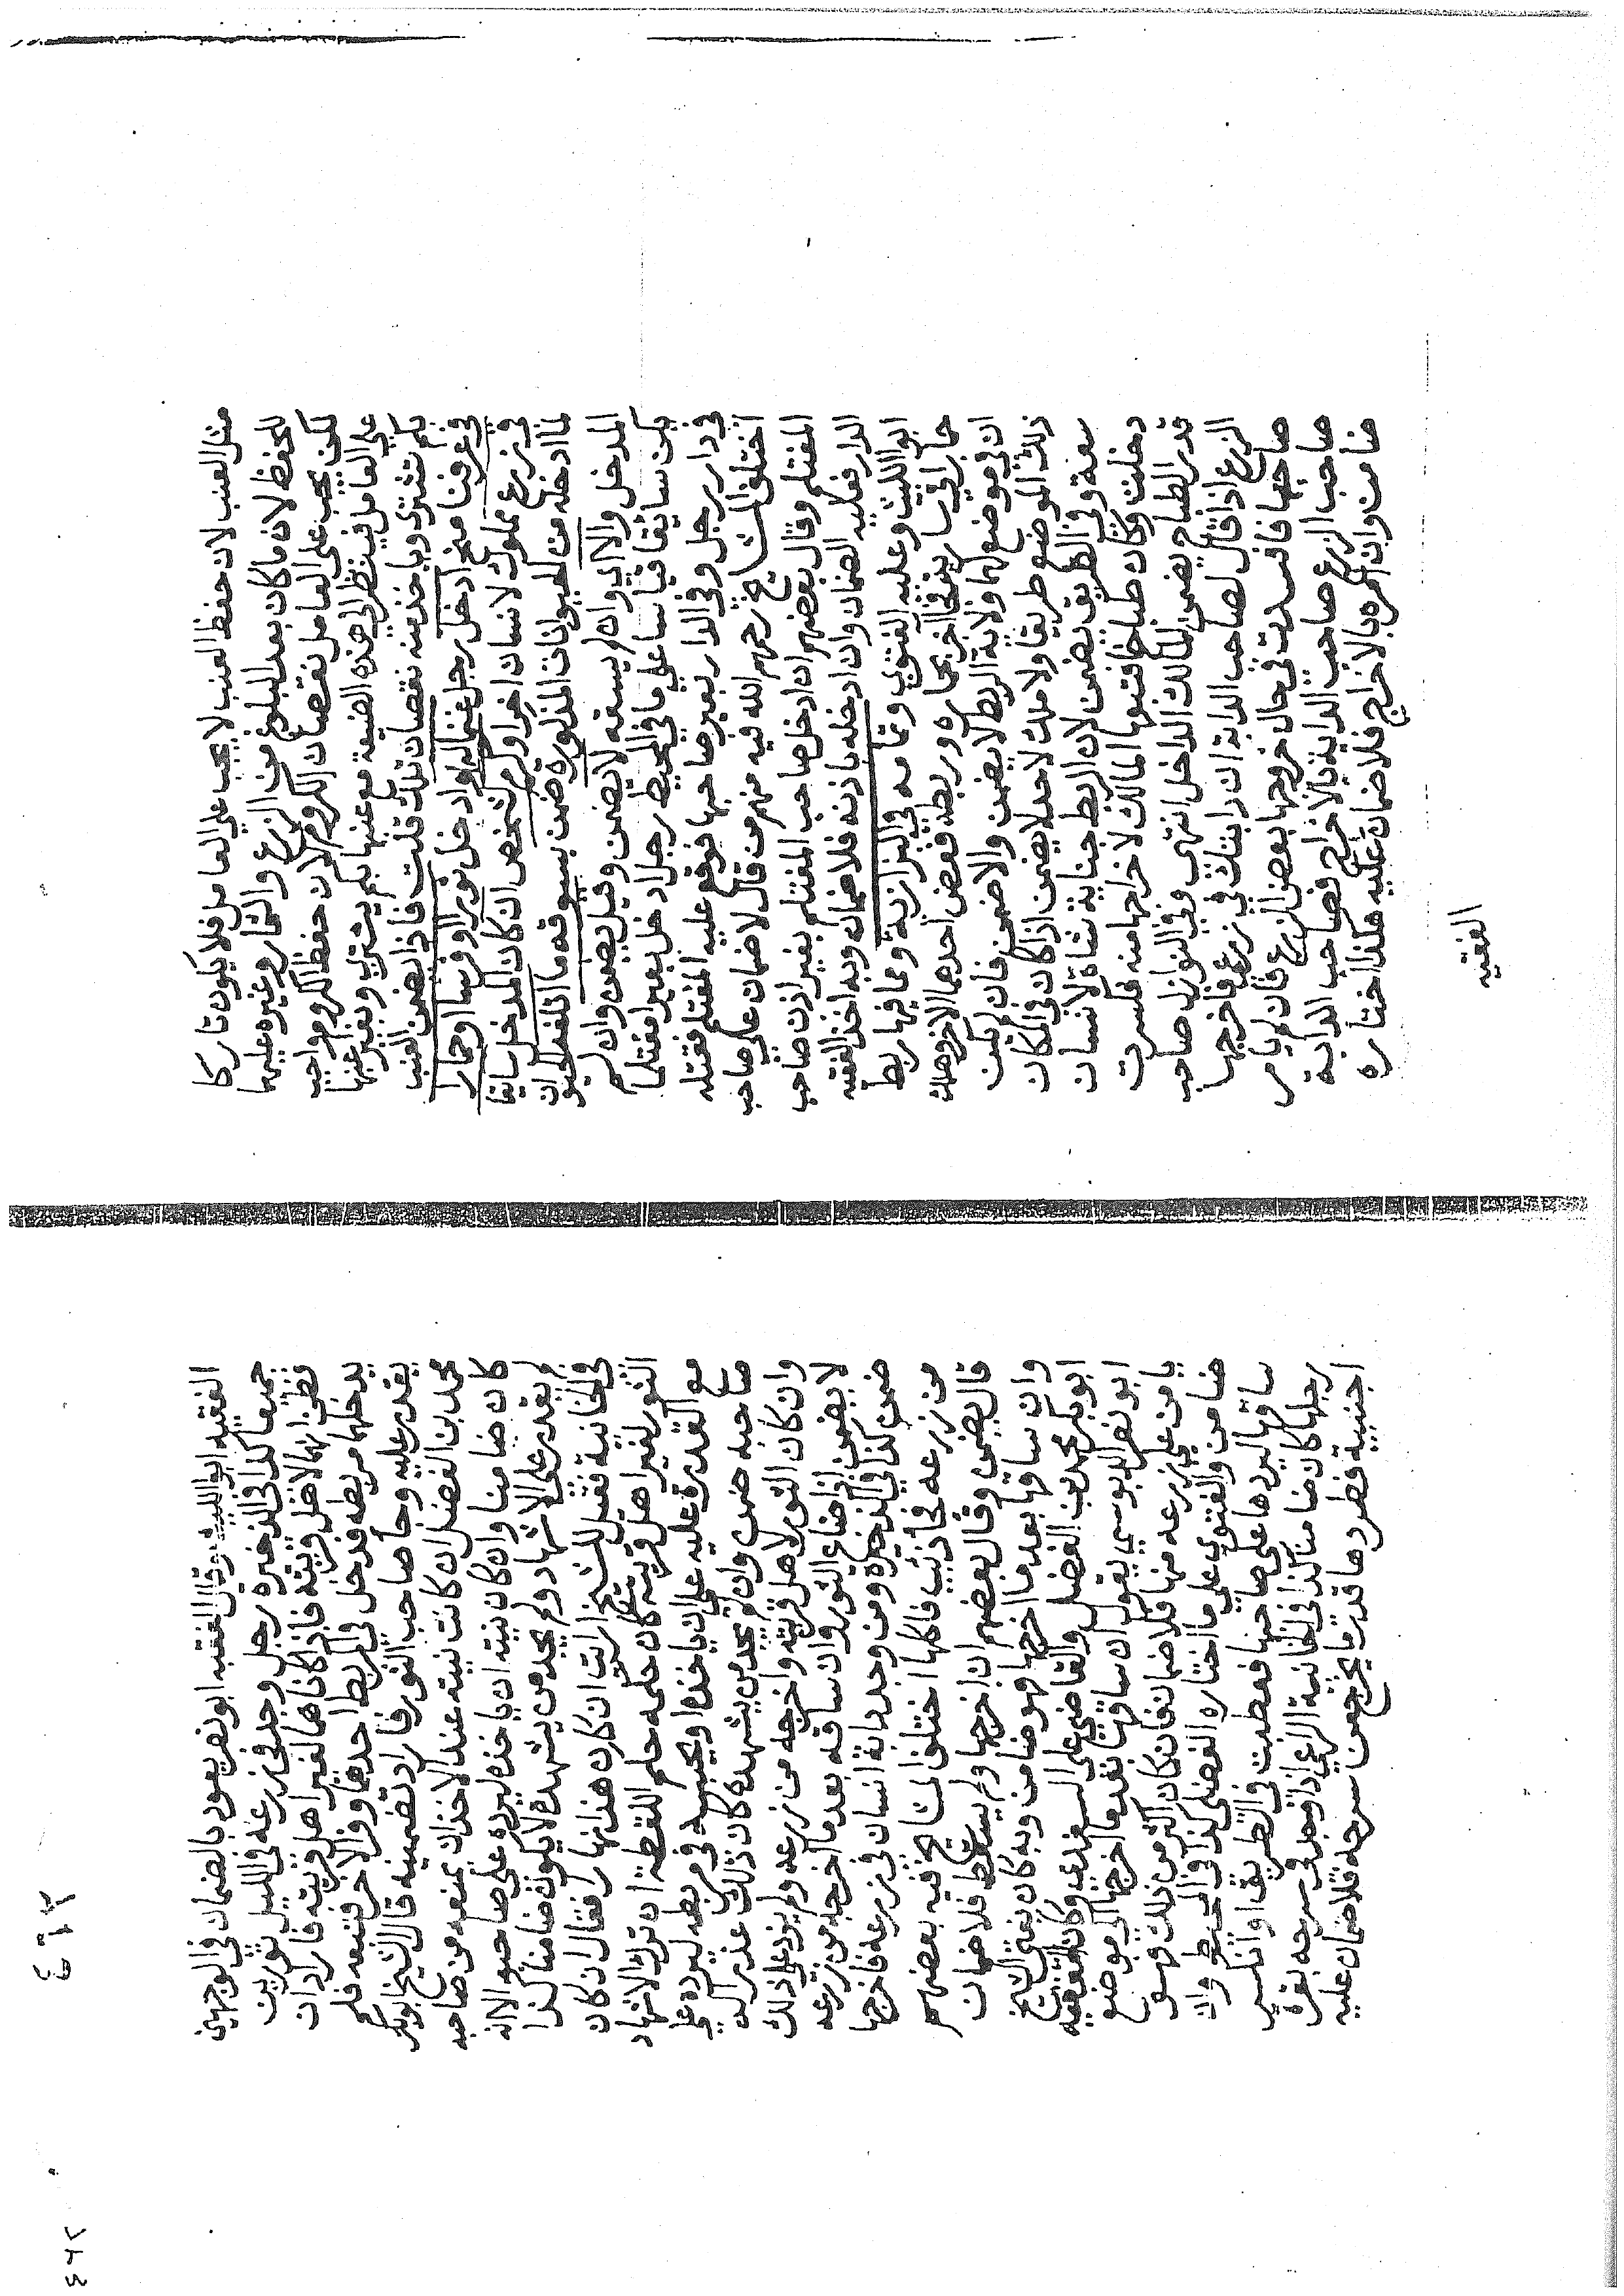 مثل العنب لان حفظ العنب لا يجب على العامل فلا يكون تاركا
للحفظ لان ما كان بعد البلوغ من الزرع والثمار وغيره عليهما
لكن يجب على العامل نقصان الكروم لان حفظ الكروم واجب
على العامل فينظر الى هذه الضيعة مع عنبها بكم يشترى وبغير عنبها
بكم تشترى وياخذ منه نقصان تلك قلت فاذا يضمن العنب
في عرفنا منح ادخل رجل غنما له او ادخل ثورا او فرسا او حمارا
في زرع مملوك لانسان اخر او كرم لشخص ان كان المدخل سايقا
لما ادخله من الحيوانات المذكورة ضمن بسوقه ما اتلفه الحيوان
المدخل والا اي وان لم يسقه لا يضمن وقيل يضمن وان لم
يكن سائقا قياسا على ما في المحيط رجل ادخل بعيرا مغتلما
في دار رجل وفي الدار بعير صاحبها فوقع عليه المغتلم فقتله
اختلف المشايخ رحمهم الله فيه منهم من قال لا ضمان على صاحب
المغتلم وقال بعضهم ان ادخل صاحب المغتلم بغير اذن صاحب
الدار فعليه الضمان وان ادخله باذنه فلا ضمان وبه اخذ الفقيه
ابو الليث وعليه الفتوى وتمامه في البزازية ومما فيها ربط
حمارا في سارية فجا آخر بحماره وربطه فعض احدهما الاخر وهلك
ان في موضع لهما ولاية الربط لا يضمن والا ضمن فان لم يكن
ذلك الموضع طريقا ولا ملك لاحد لا يضمن اذا كان في المكان
سعة وفي الطريق يضمن لان الربط جناية شاة لانسان
دخلت دكان طباخ فتبعها المالك لاخراجها منه فكسرت
قدر الطباخ يضمن المالك الداخل انتهى وفي النوازل صاحب
الزرع اذا قال لصاحب الدابة ان دابتك في زرعي فاخرجها
صاحبها فافسدت في حال خروجها بعض الزرع فان لم يامر
صاحب الزرع صاحب الدابة بالاخراج فصاحب الدابة
ضامن وان امره بالاخراج فلا ضمان عليه هكذا اختاره
الفقيه
الفقيه ابو الليث وقال الفقيه ابو نصر يعود بالضمان في الوجهين
جميعا كذا في الذخيرة رجل وجد في زرعه في الليل ثورين
فظن انهما لاهل قريته فاذا كانا هما لغير اهل قريته فاراد ان
يدخلهما مربطه فدخل في المربط احدهما وفر الاخر فتبعه فلم
يقدر عليه وجا صاحب الثور فاراد تضمينه قال الشيخ ابو بكر
محمد بن الفضل ان كانت نيته عند الاخذ ان يمنعه من صاحبه
كان ضامنا وان كان نيته ان ياخذه ليرده على صاحبه الا انه
لم يقدر على الاشهاد ولم يجد من يشهده لا يكون ضامنا كذا
في الخانية فقيل للشيخ ارايت ان كان هذا نهارا فقال ان كان
الثور لغير اهل قريته كان حكمه حكم اللقطة ان ترك الاشهاد
مع القدرة عليه على ان ياخذه او يحبسه في مربطه ليرده على
صاحبه ضمن وان لم يجد من يشهده كان ذلك عذرا له
وان كان الثور لاهل قريته واخرجه من زرعه ولم يزد على ذلك
لا يضمن اذا ضاع الثور وان ساقه بعد ما اخرجه من زرعه
ضمن كذا في الذخيرة ومن وجد دابة انسان في زرعه فاخرجها
من زرعه فجا ذئب فاكلها اختلف المشايخ فيه بعضهم
قال يضمن وقال بعضهم ان اخرجها ولم يسقها فلا ضمان
وان ساقها بعد ما اخرجها فهو ضامن وبه كان يفتي الشيخ
ابو بكر محمد بن الفضل والقاضي على السغدي وكان الفقيه
ابو نصر الدبوسي يقول ان ساقها بعد ما اخرجها الى موضع
يامن على زرعه منها فلا ضمان فان كان اكثر من ذلك فهو
ضامن والفتوى على ما اختاره الفضلى كذا في المحيط وان
ساقها ليردها على صاحبها فعطبت في الطريق او انكسر
رجلها كان ضامنا كذا في الخانية الراعي اذا وجد في سرحه بقرة
اجنبية فطردها قدر ما يخرج من سرحه فلا ضمان عليه